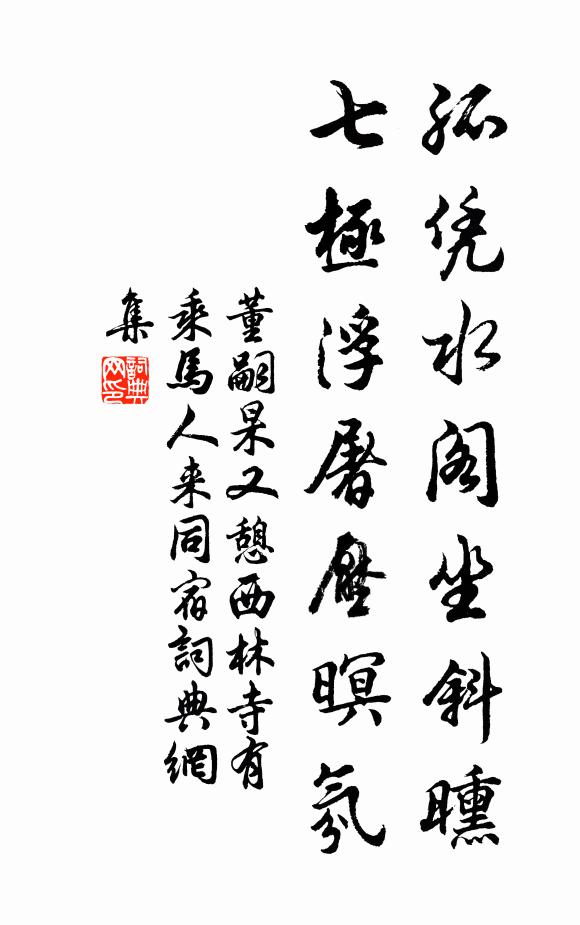 孤凭水阁坐斜曛
七極浮屠壓暝氛
董嗣杲又憩西林寺有
乘馬人来同宿詞典網
集
詞典
网印